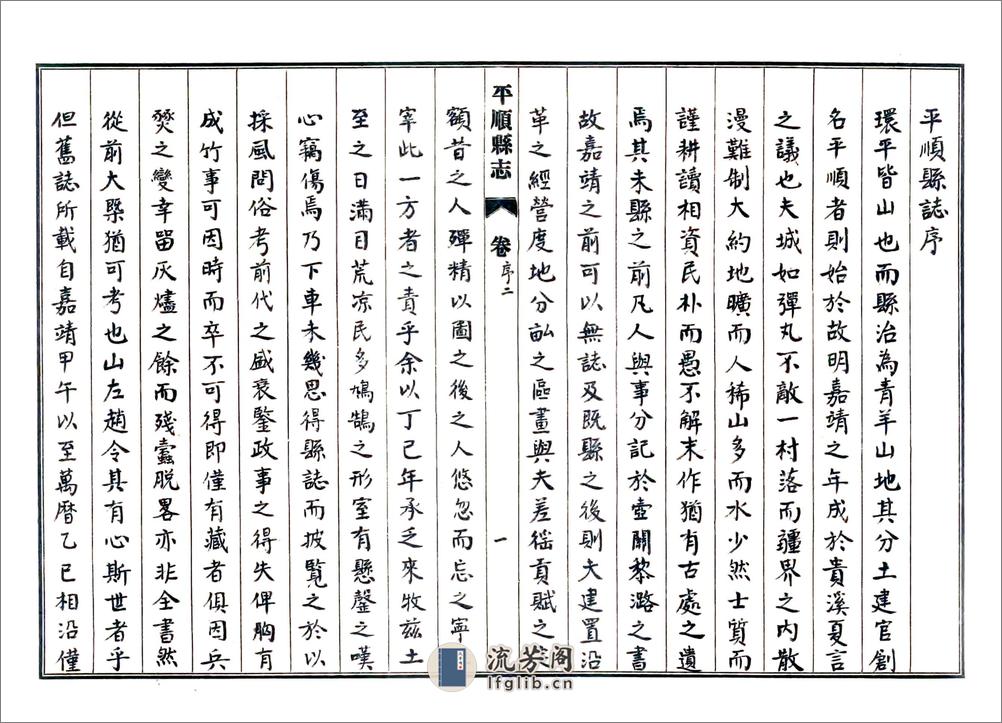 平順縣誌序
環平皆山也而縣治為青羊山地其分土建官創
名平順者則始於故明嘉靖之年成於貴溪夏言
之議也夫城如彈丸不敵一村落而疆界之內散
漫難制大約地曠而人稀山多而水少然士質而
謹耕讀相資民朴而愚不解末作猶有古處之遺
焉其未縣之前凡人與事分記於壺關黎潞之書
故嘉靖之前可以無誌及既縣之後則夫建置沿
革之經營度地分畝之區畫與夫差徭貢賦之
平順縣志 卷序二 一
額昔之人殫精以圖之後之人悠忽而忘之寧
宰此一方者之責乎余以丁巳年承乏來牧茲土
至之日滿目荒凉民多鳩鵠之形室有懸罄之嘆
心竊傷焉乃下車未幾思得縣誌而披覽之於以
採風問俗考前代之盛衰鑒政事之得失俾胸有
成竹事可因時而卒不可得即僅有藏者俱因兵
燹之變幸留灰燼之餘而殘蠹脫畧亦非全書然
從前大槩猶可考也山左趙令其有心斯世者乎
但舊誌所載自嘉靖甲午以至萬曆乙巳相沿僅
流芳阁
lfglib.cn